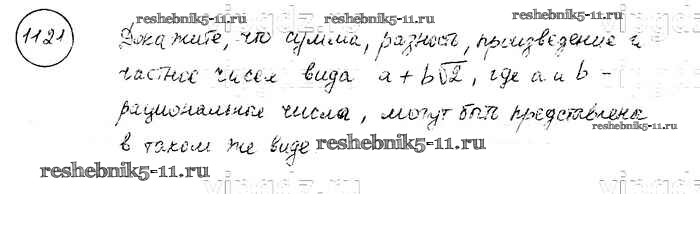 reshebnik5-11.ru
reshebnik5-11.ru
1121 Докажите, что сумма, разность, произведение и
частное чисел вида a+b√2, где a и b -
рациональные числа, могут быть представлены
reshebnik5-11.ru
в таком же виде
reshebnik5-11.ru
reshebnik5-11.ru
vipgdz.ru
vipgdz.ru